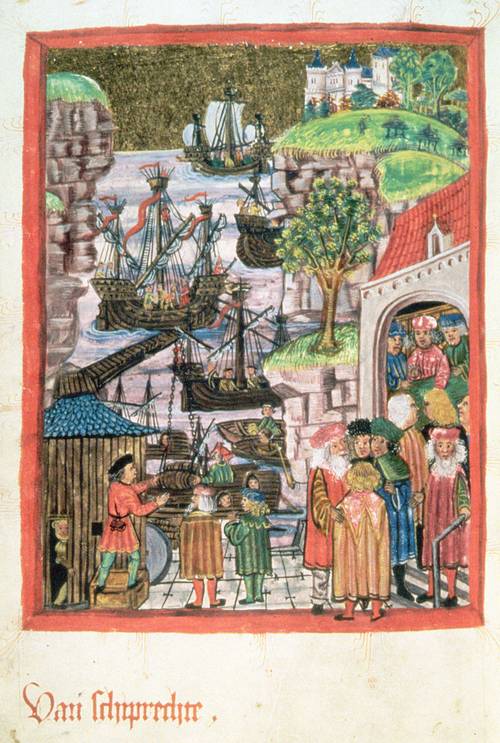 Van schiprechte .